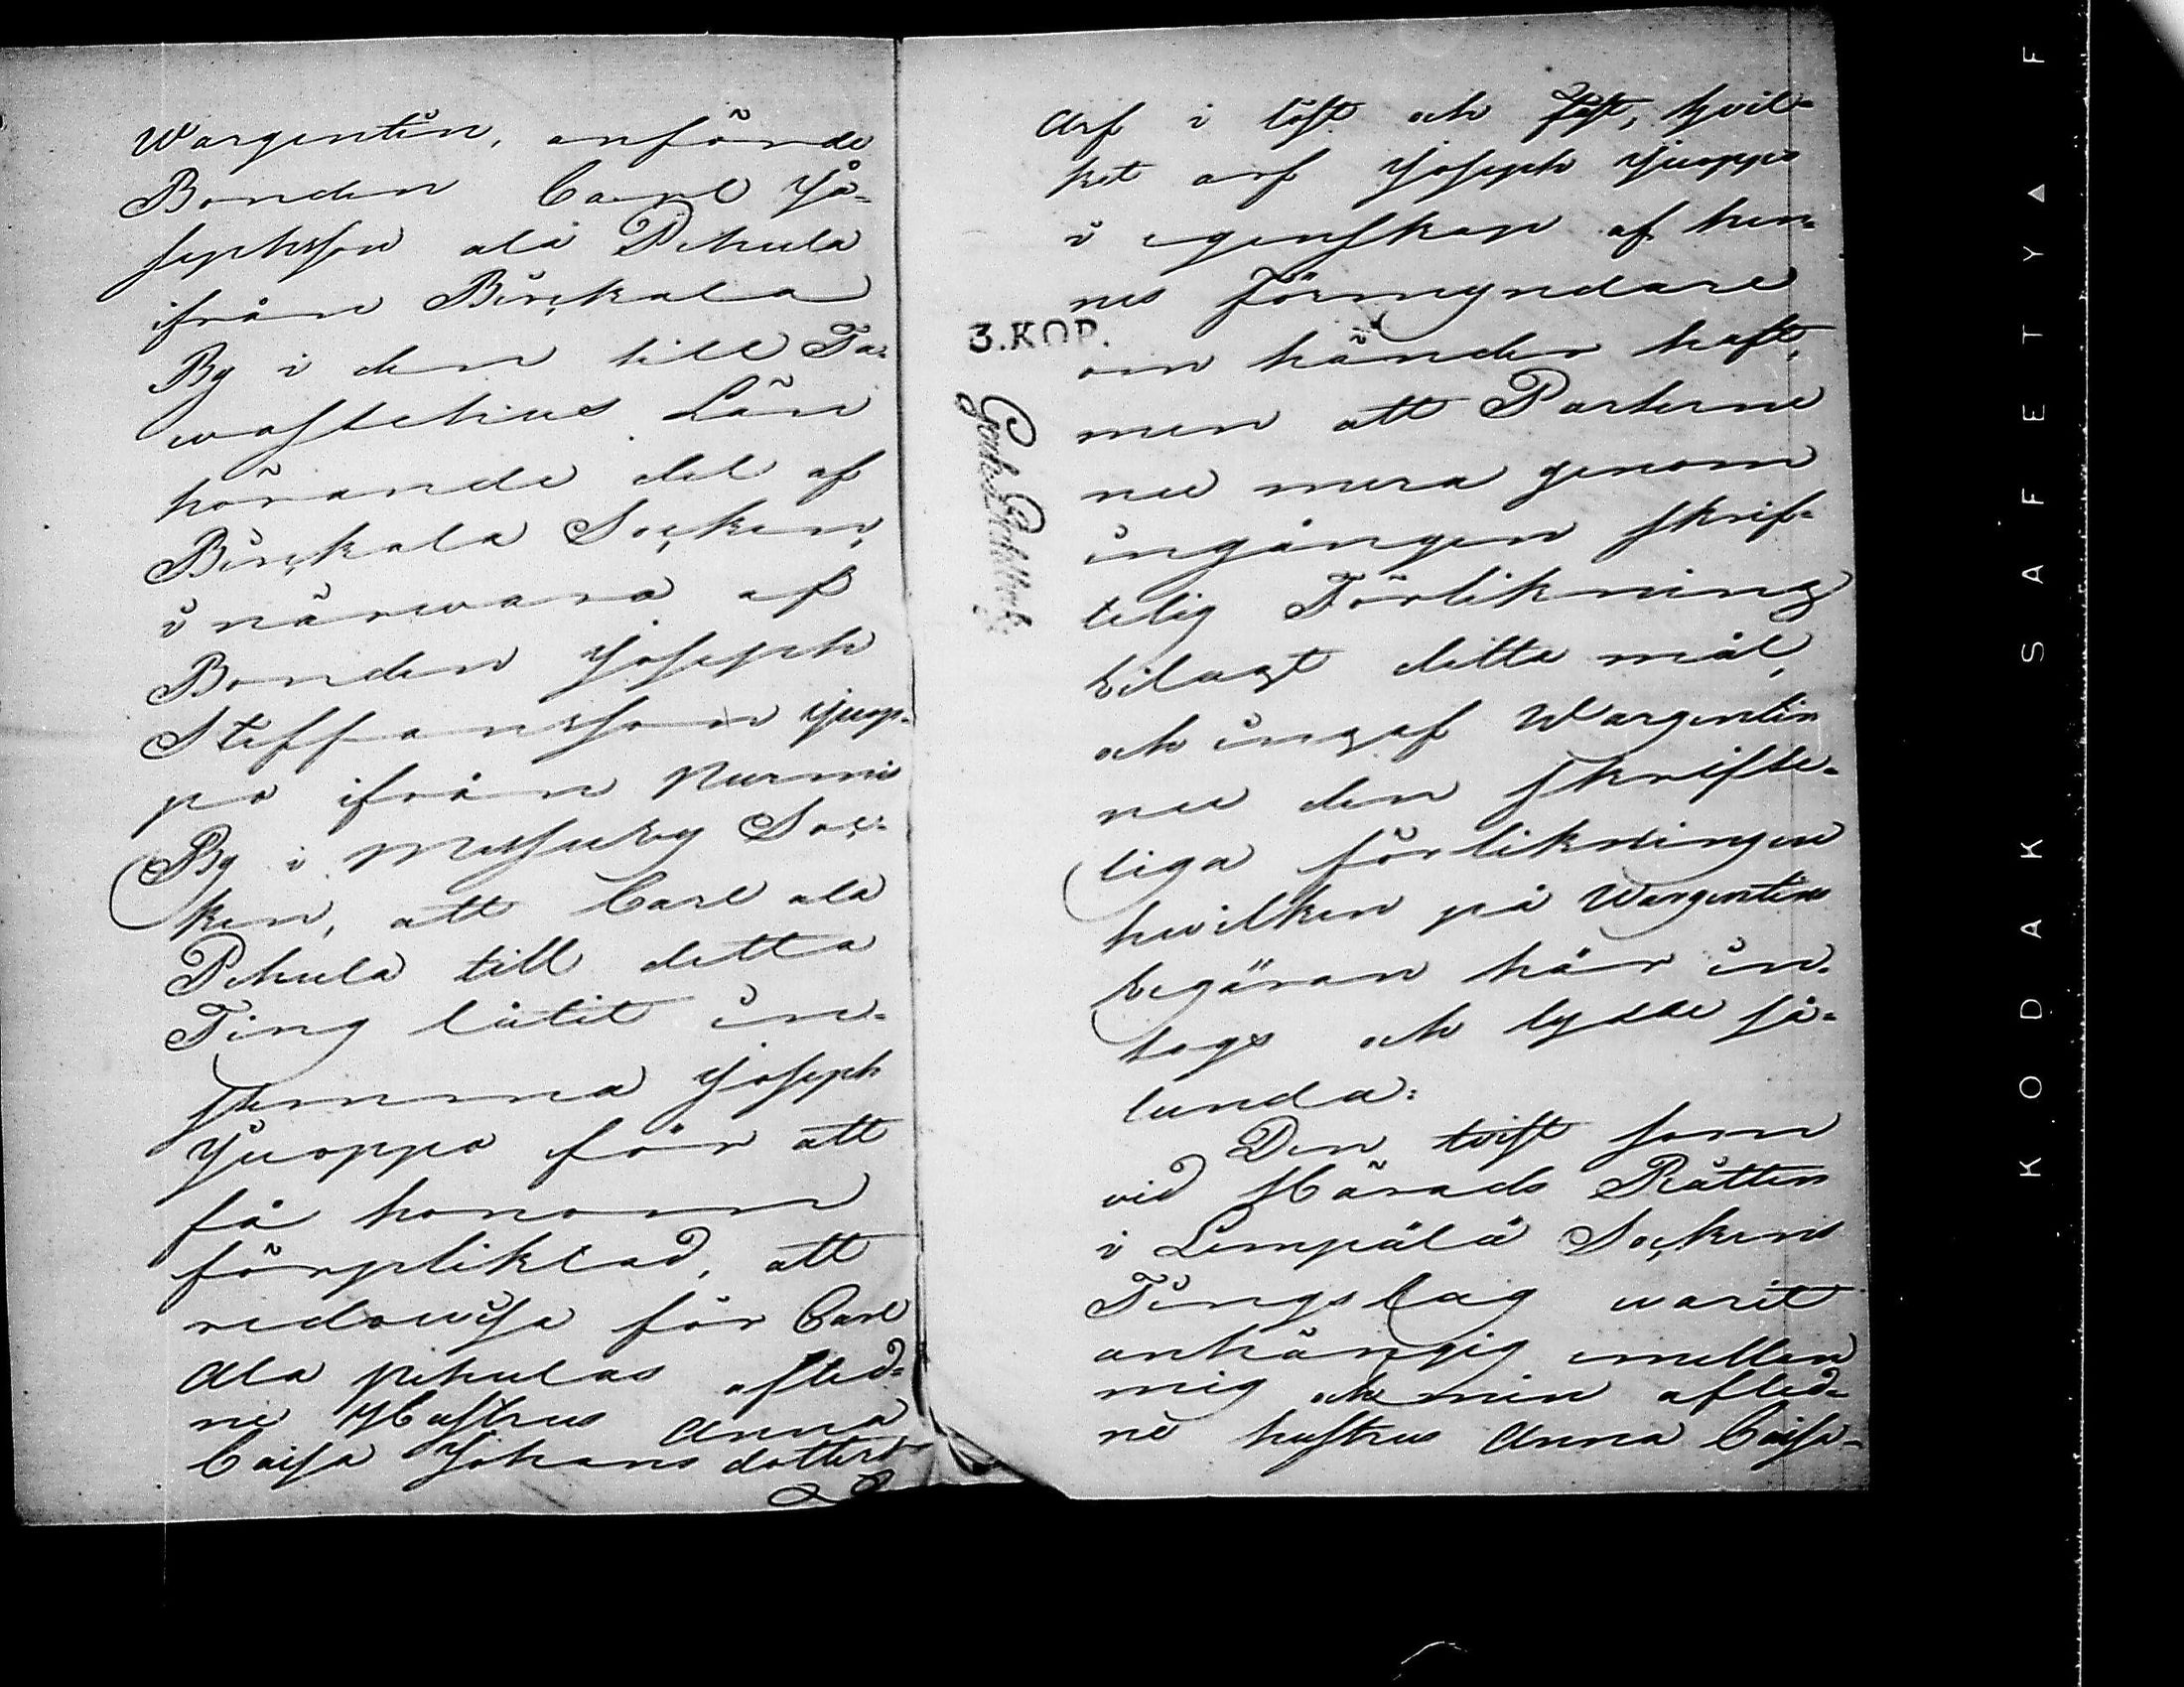 Wargentin, anförde
Bonden Carl Jo-
sephsson ala Pehula
ifrån Birckala
By i den till Ta-
wastehus Län
hörande del af
Birckala Socken,
i närwara af
Bonden Joseph
Steffansson Juop-
po ifrån Nurmis
By i Messuby Soc-
ken, att Carl ala
Pehula till detta
Ting låtit in-
stemma Joseph
Juoppo för att
få honom
förpliktad, att
redowisa för Carl
Ala Pehulas afled-
ne Hustrus Anna
Caisa Johansdotters
Arf i löst och fast, hvil-
ket arf Joseph Juoppo
i egenskap af hen-
nes Förmyndare
om händer haft,
men att Parterne
nu mera genom
ingången skrift-
telig Förlikning
bilagt detta mål,
och ingaf Wargentin
nu den skrifte-
liga förlikningen
hvilken på Wargentins
begäran här in-
togs och lydde så-
lunda:
Den tvist som
vid Härads Rätten
i Lempälä Sockens
Tingslag warit
anhängig emellan
mig och min afled-
ne hustrus Anna Caisa
3. KOP.
KODAK SAFETY A F